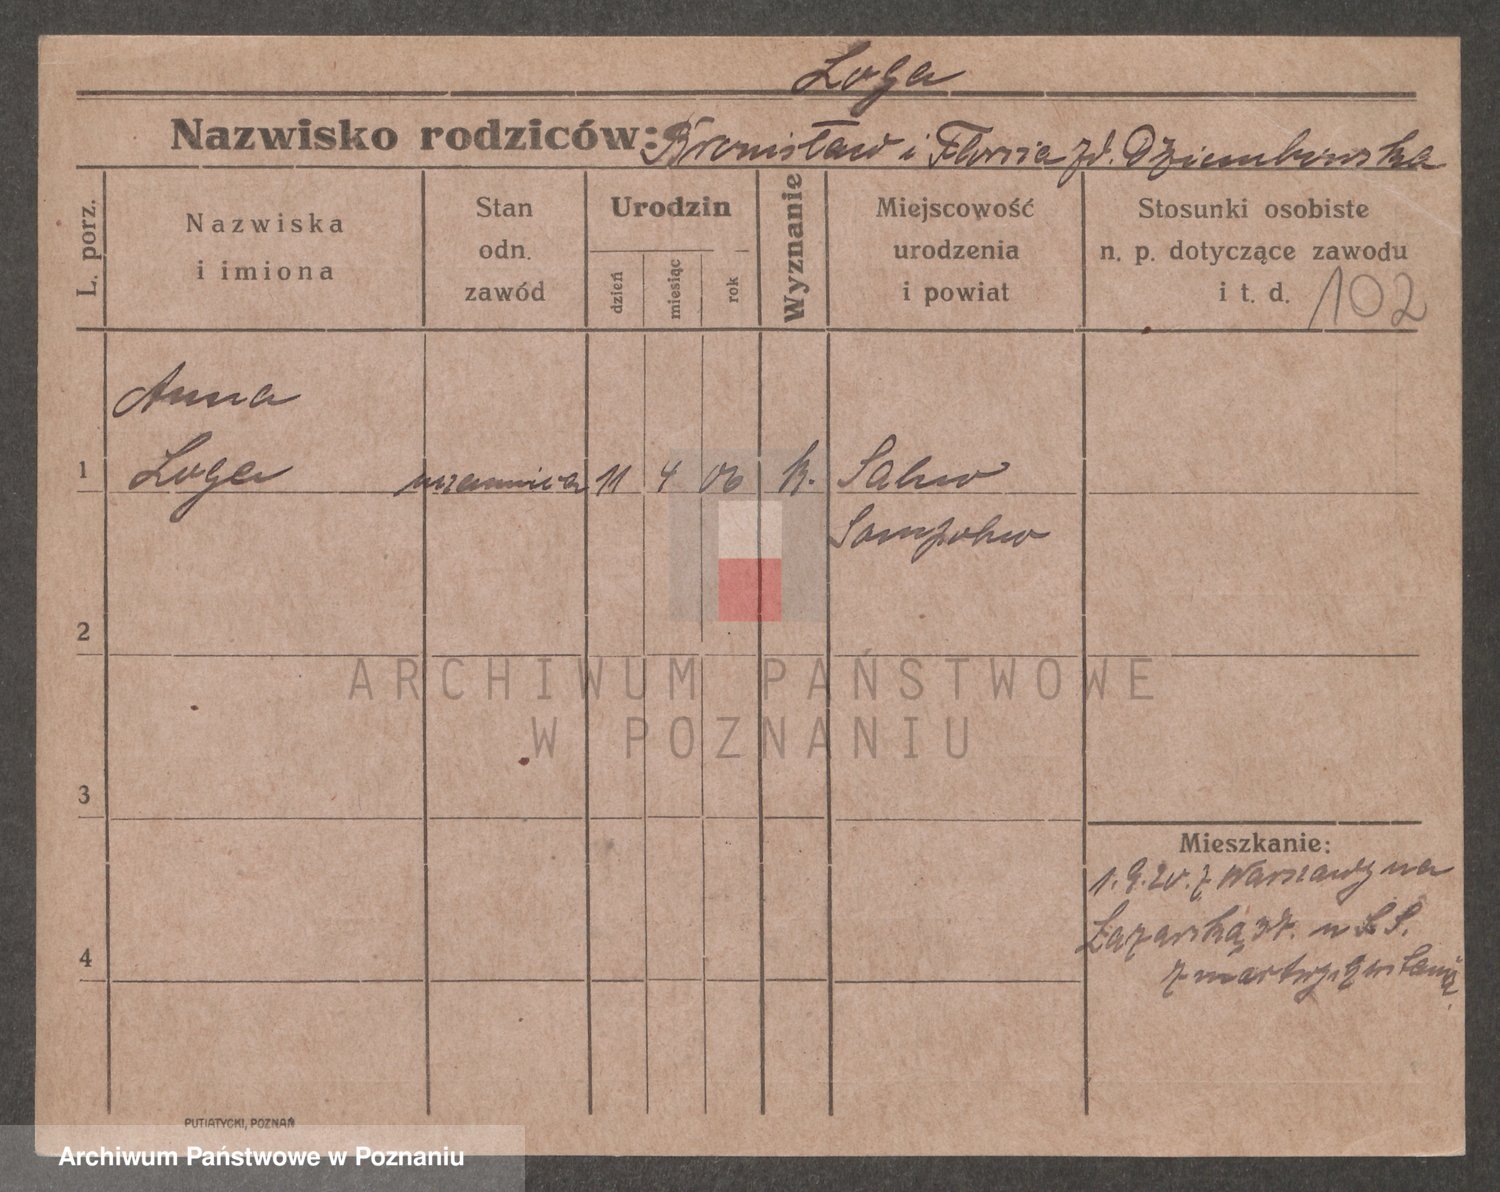 Loga
Nazwisko rodziców: Bronisław i Florsia zd. Dziembowska
L. porz.
Nazwiska
i imiona
Stan
odn.
zawód
Urodzin
dzień
miesiąc
rok
Wyznanie
Miejscowość
urodzenia
i powiat
Stosunki osobiste
n. p. dotyczące zawodu
i t. d. 102
Anna
1 Loga uczennica 11 4 06 k. Salno
Sompolno
2
ARCHIWUM PAŃSTWOWE
W POZNANIU
3
Mieszkanie:
1.9.20. z Warszawy na
Łazarską u S.S.
4
zmartwychwstania.
PUTIATYCKI, POZNAŃ
Archiwum Państwowe w Poznaniu